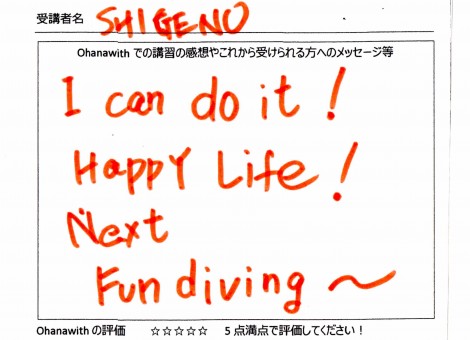 受講者名 SHIGENO
Ohanawith での講習の感想やこれから受けられる方へのメッセージ等
I can do it!
Happy Life!
Next
Fun diving 〜
Ohanawith の評価 ☆☆☆☆☆ 5点満点で評価してください！